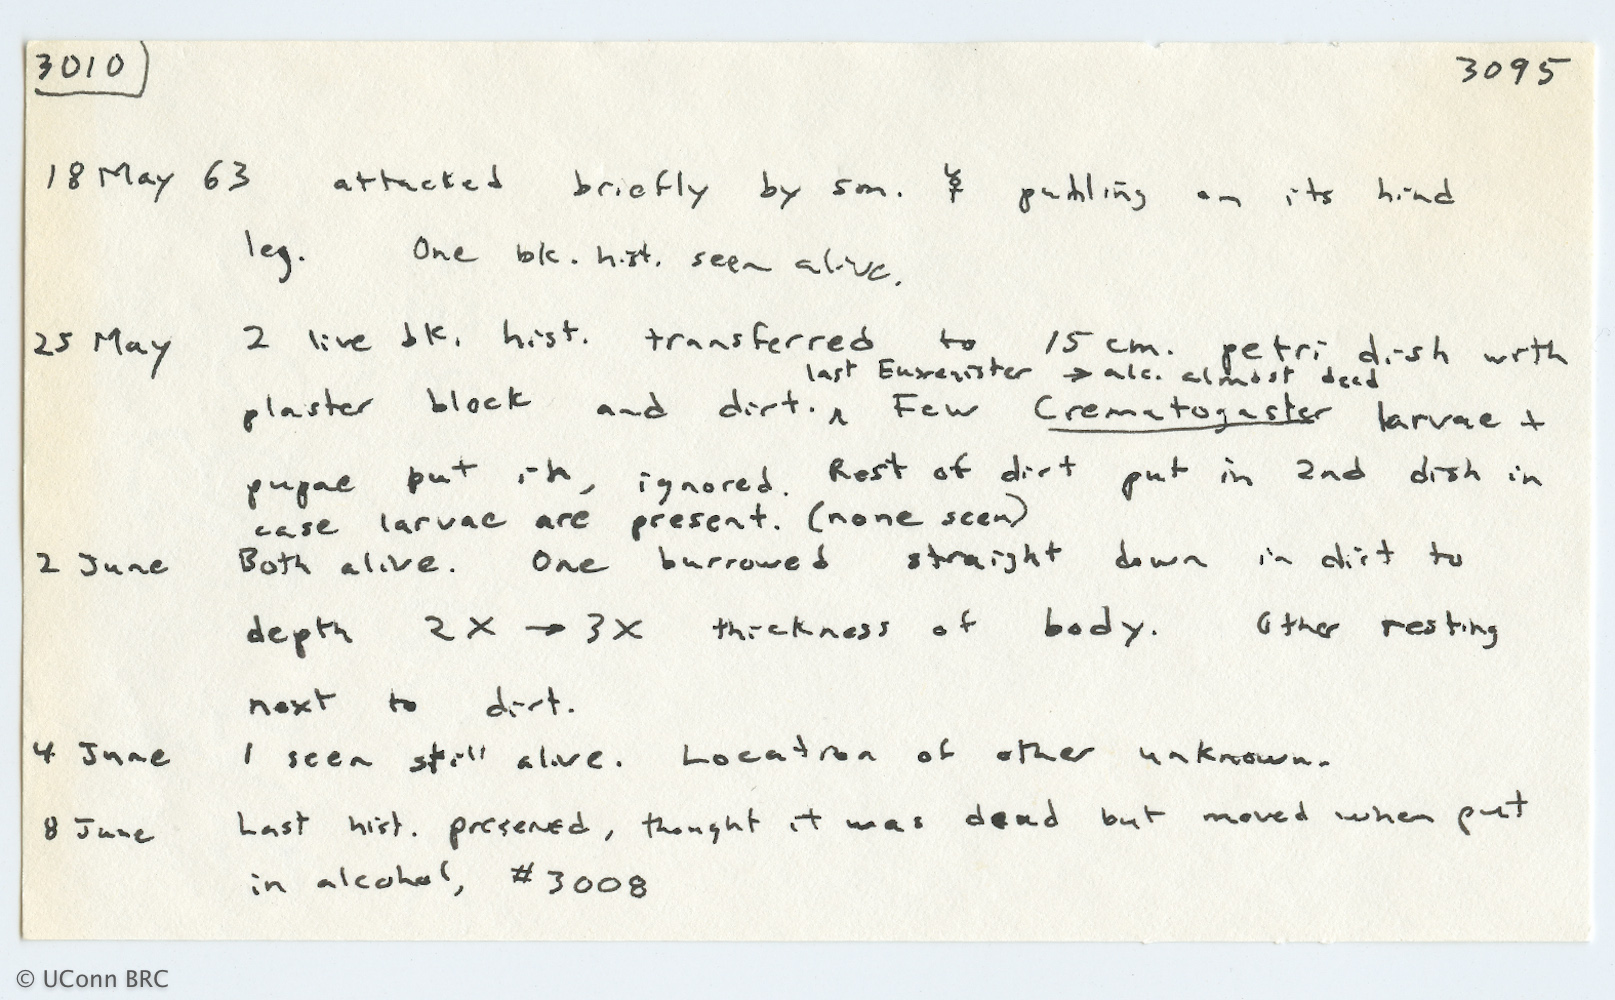 3010
3095
18 May 63 attacked briefly by sm. ☿ pulling on its hind
leg. One bk. hist. seen alive.
25 May 2 live bk. hist. transferred to 15 cm. petri dish with
last Euxenister → alc. almost dead
plaster block and dirt. ʌ Few Crematogaster larvae +
pupae put in, ignored. Rest of dirt put in 2nd dish in
case larvae are present. (none seen)
2 June Both alive. One burrowed straight down in dirt to
depth 2X → 3X thickness of body. Other resting
next to dirt.
4 June 1 seen still alive. Location of other unknown.
8 June Last hist. preserved, thought it was dead but moved when put
in alcohol, #3008
© UConn BRC